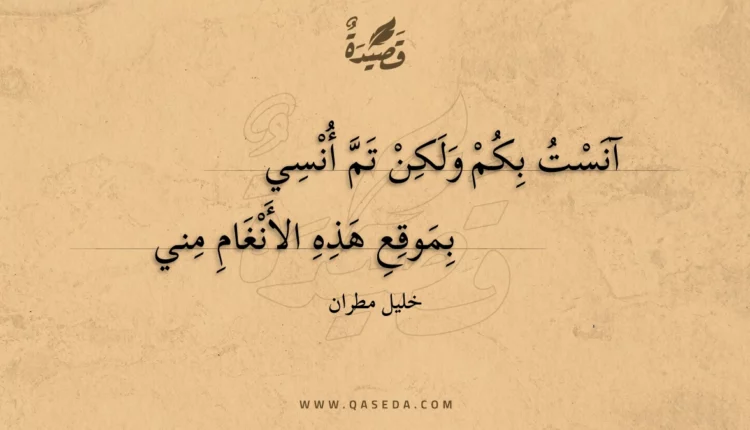 قَصِيْدَةٌ
آنَسْتُ بِكُمْ وَلَكِنْ تَمَّ أُنْسِي
بِمَوقِعِ هَذِهِ الأَنْغَامِ مِني
خليل مطران
WWW.QASEDA.COM